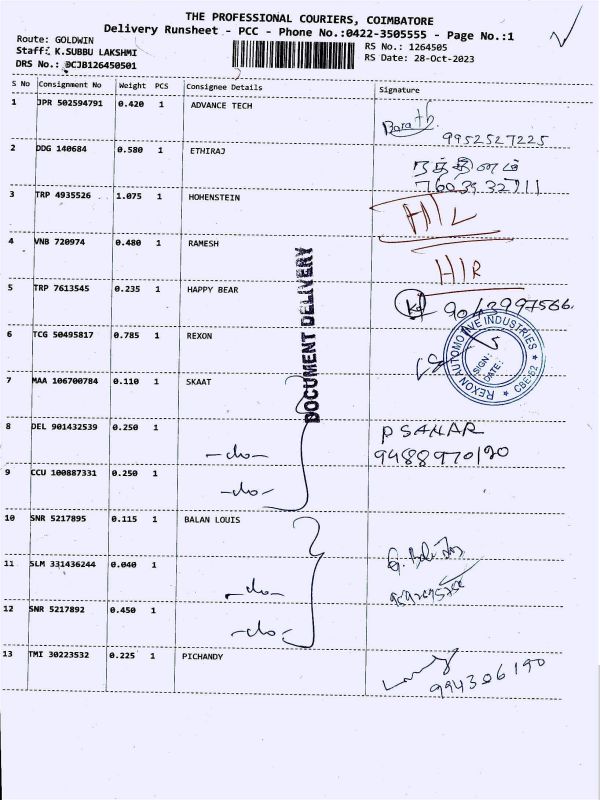 THE PROFESSIONAL COURIERS, COIMBATORE
Delivery Runsheet - PCC - Phone No.:0422-3505555 - Page No.:1
Route: GOLDWIN
RS No.: 1264505
Staff: K.SUBBU LAKSHMI
RS Date: 28-Oct-2023
DRS No.: DCJB126450501
S No Consignment No Weight PCS Consignee Details Signature
1 JPR 502594791 0.420 1 ADVANCE TECH
Barath
9952527225
2 DDG 140684 0.580 1 ETHIRAJ
3 TRP 4935526 1.075 1 HOHENSTEIN
H/L
4 VNB 720974 0.480 1 RAMESH
H/R
5 TRP 7613545 0.235 1 HAPPY BEAR
9043997566
6 TCG 50495817 0.785 1 REXON
REXON AUTOMOTIVE INDUSTRIES
SIGN:
DATE:
CBE-62
7 MAA 106700784 0.110 1 SKAAT
DOCUMENT DELIVERY
8 DEL 901432539 0.250 1 -do-
9488970120
9 CCU 100887331 0.250 1 -do-
10 SNR 5217895 0.115 1 BALAN LOUIS
11 SLM 331436244 0.040 1 -do-
12 SNR 5217892 0.450 1 -do-
13 TMI 30223532 0.225 1 PICHANDY
994306190